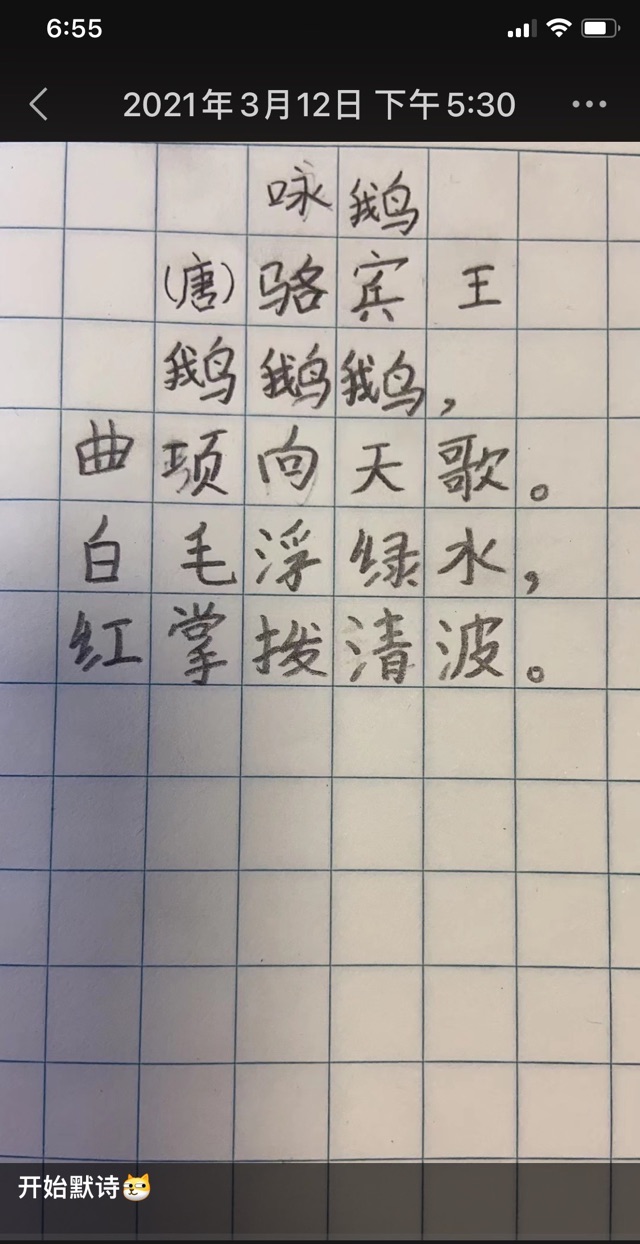 6:55
2021年3月12日 下午5:30
咏鹅
(唐)骆宾王
鹅鹅鹅，
曲项向天歌。
白毛浮绿水，
红掌拨清波。
开始默诗